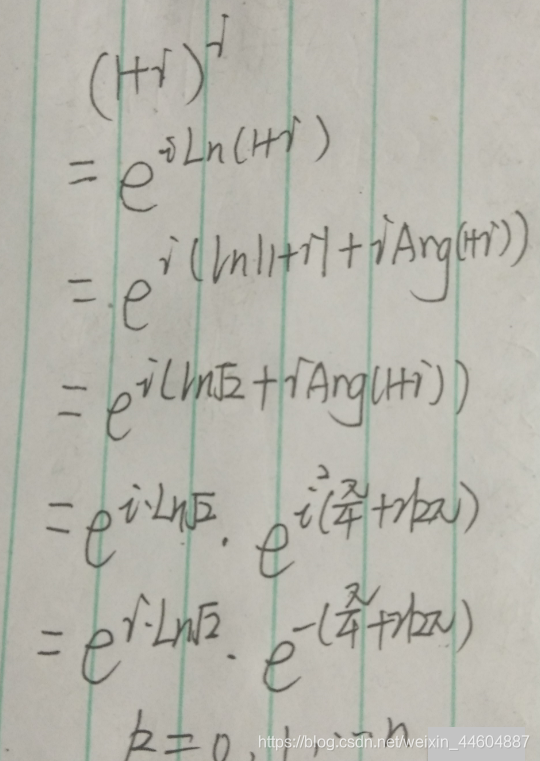 (1+i)^i
= e^{i Ln(1+i)}
= e^{i(ln|1+i| + iArg(1+i))}
= e^{i(ln√2 + iArg(1+i))}
= e^{i·Ln√2} · e^{i²(π/4+2kπ)}
= e^{i·Ln√2} · e^{-(π/4+2kπ)}
k=0, 1, ... n
https://blog.csdn.net/weixin_44604887